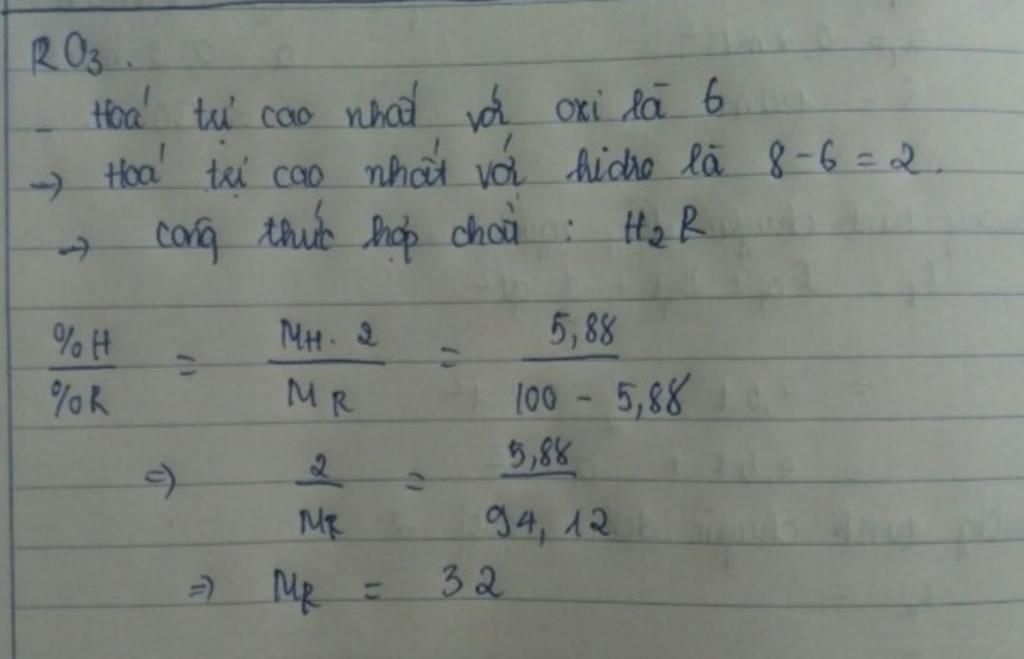 RO₃.
- Hoá trị cao nhất với oxi là 6
→ Hoá trị cao nhất với hidro là 8 - 6 = 2.
→ công thức hợp chất : H₂R
%H / %R = M_H . 2 / M_R = 5,88 / 100 - 5,88
⇒ 2 / M_R = 5,88 / 94,12
⇒ M_R = 32